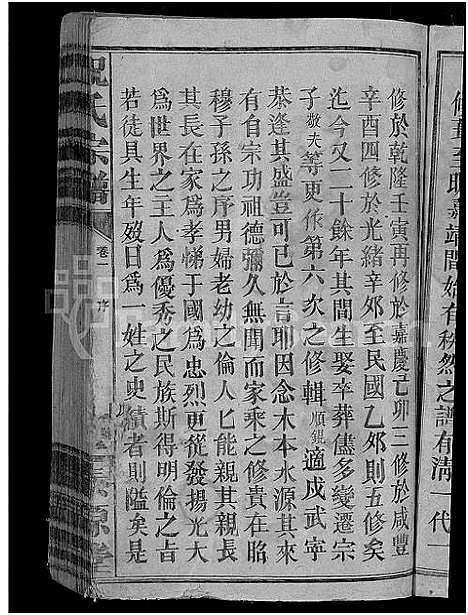 修葺至明嘉靖間始有秩然之譜有清一代一
修於乾隆壬寅再修於嘉慶己卯三修於咸豐
辛酉四修於光緒辛卯至民國乙卯則五修矣
迄今又二十餘年其間生娶卒葬儘多變遷宗
子敬夫等更係第六次之修輯順鋧適戍武寧
恭逢其盛豈可已於言耶因念木本水源其來
有自宗功祖德彌久無聞而家乘之修貴在昭
穆子孫之序男婦老幼之倫人匕能親其親長
其長在家爲孝悌于國爲忠烈更從發揚光大
爲世界之主人爲優秀之民族斯得明倫之旨
若徒具生年歿日爲一姓之史績者則隘矣是
祝氏宗譜
卷一 序